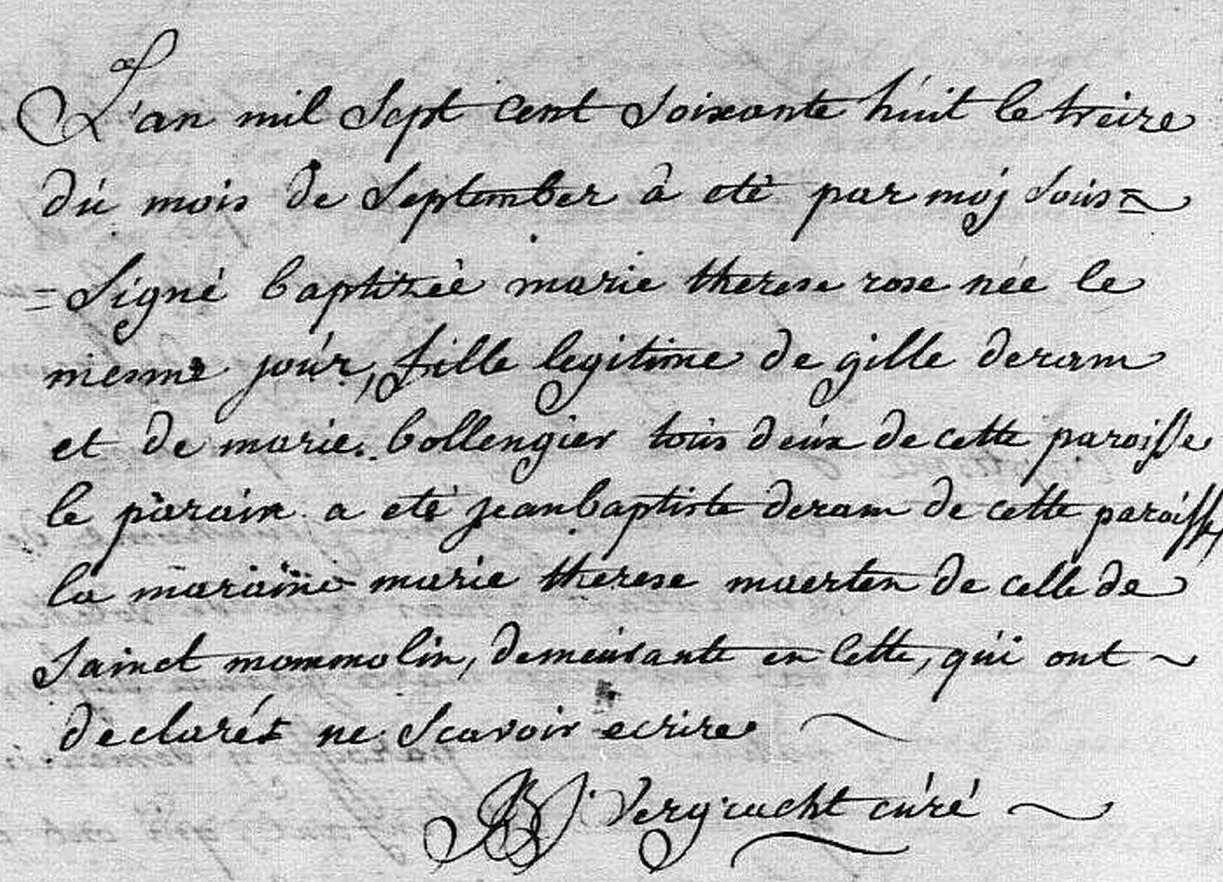 L'an mil Sept cent Soixante húit le treize
dú mois de September à eté par moj Sous=
=Signé baptizèè marie therese rose nèe le
mesme joúr, fille legitime de gille deram
et de marie. bollengier toús deúx de cette paroisse
le parain a eté jeanbaptiste deram de cette paroisse,
la maraine marie therese maerten de celle de
Sainct mommolin, demeúrante en cette, qúi ont ~
declarés ne Scavoir ecrire
cúré ~